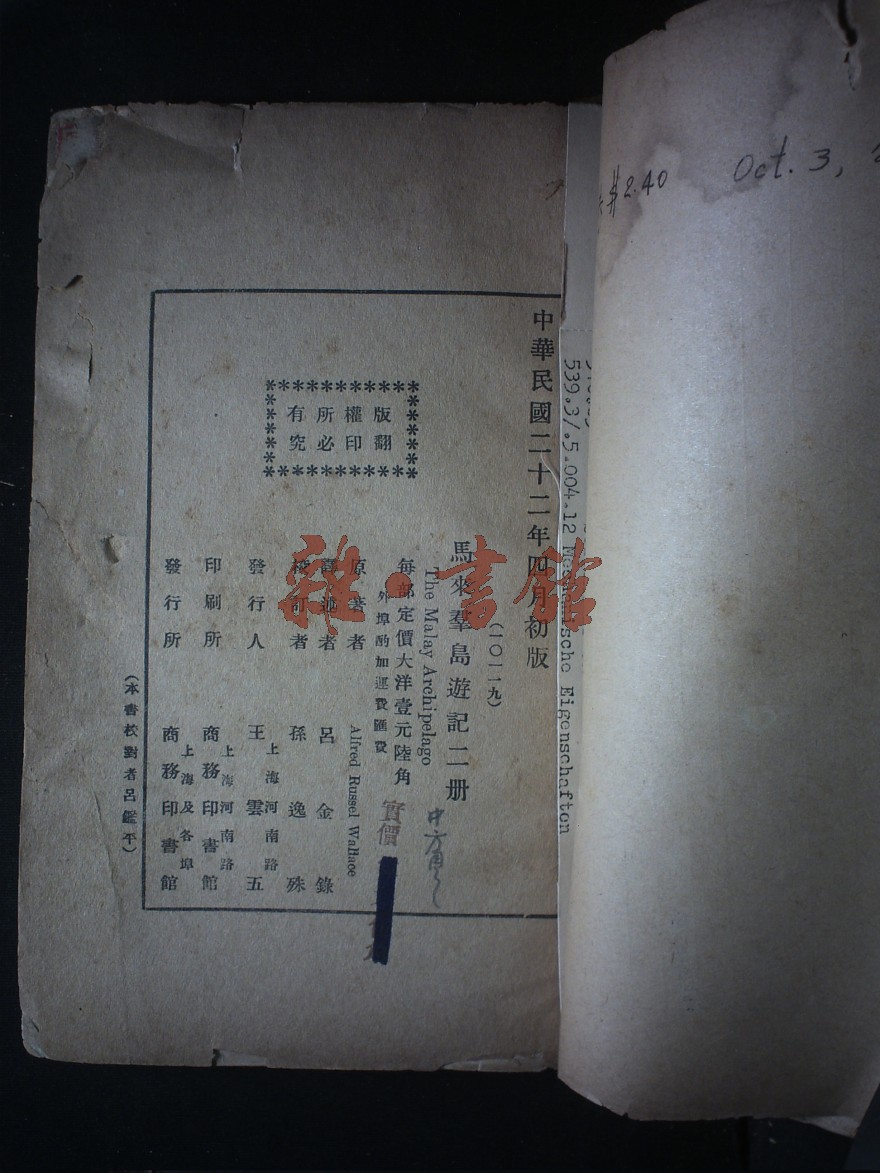 $2.40
Oct. 3,
中華民國二十二年四月初版
(一〇一一九)
馬來羣島遊記二册
The Malay Archipelago
每部定價大洋壹元陸角
實價
外埠酌加運費匯費
原著者 Alfred Russel Wallace
譯述者 呂金錄
校訂者 孫逸殊
發行人 王雲五
上海河南路
印刷所 商務印書館
上海河南路
發行所 商務印書館
上海及各埠
版權所有
翻印必究
(本書校對者呂鑑平)
539.3/.5.004.12 Mechanische Eigenschaften
雜·書館